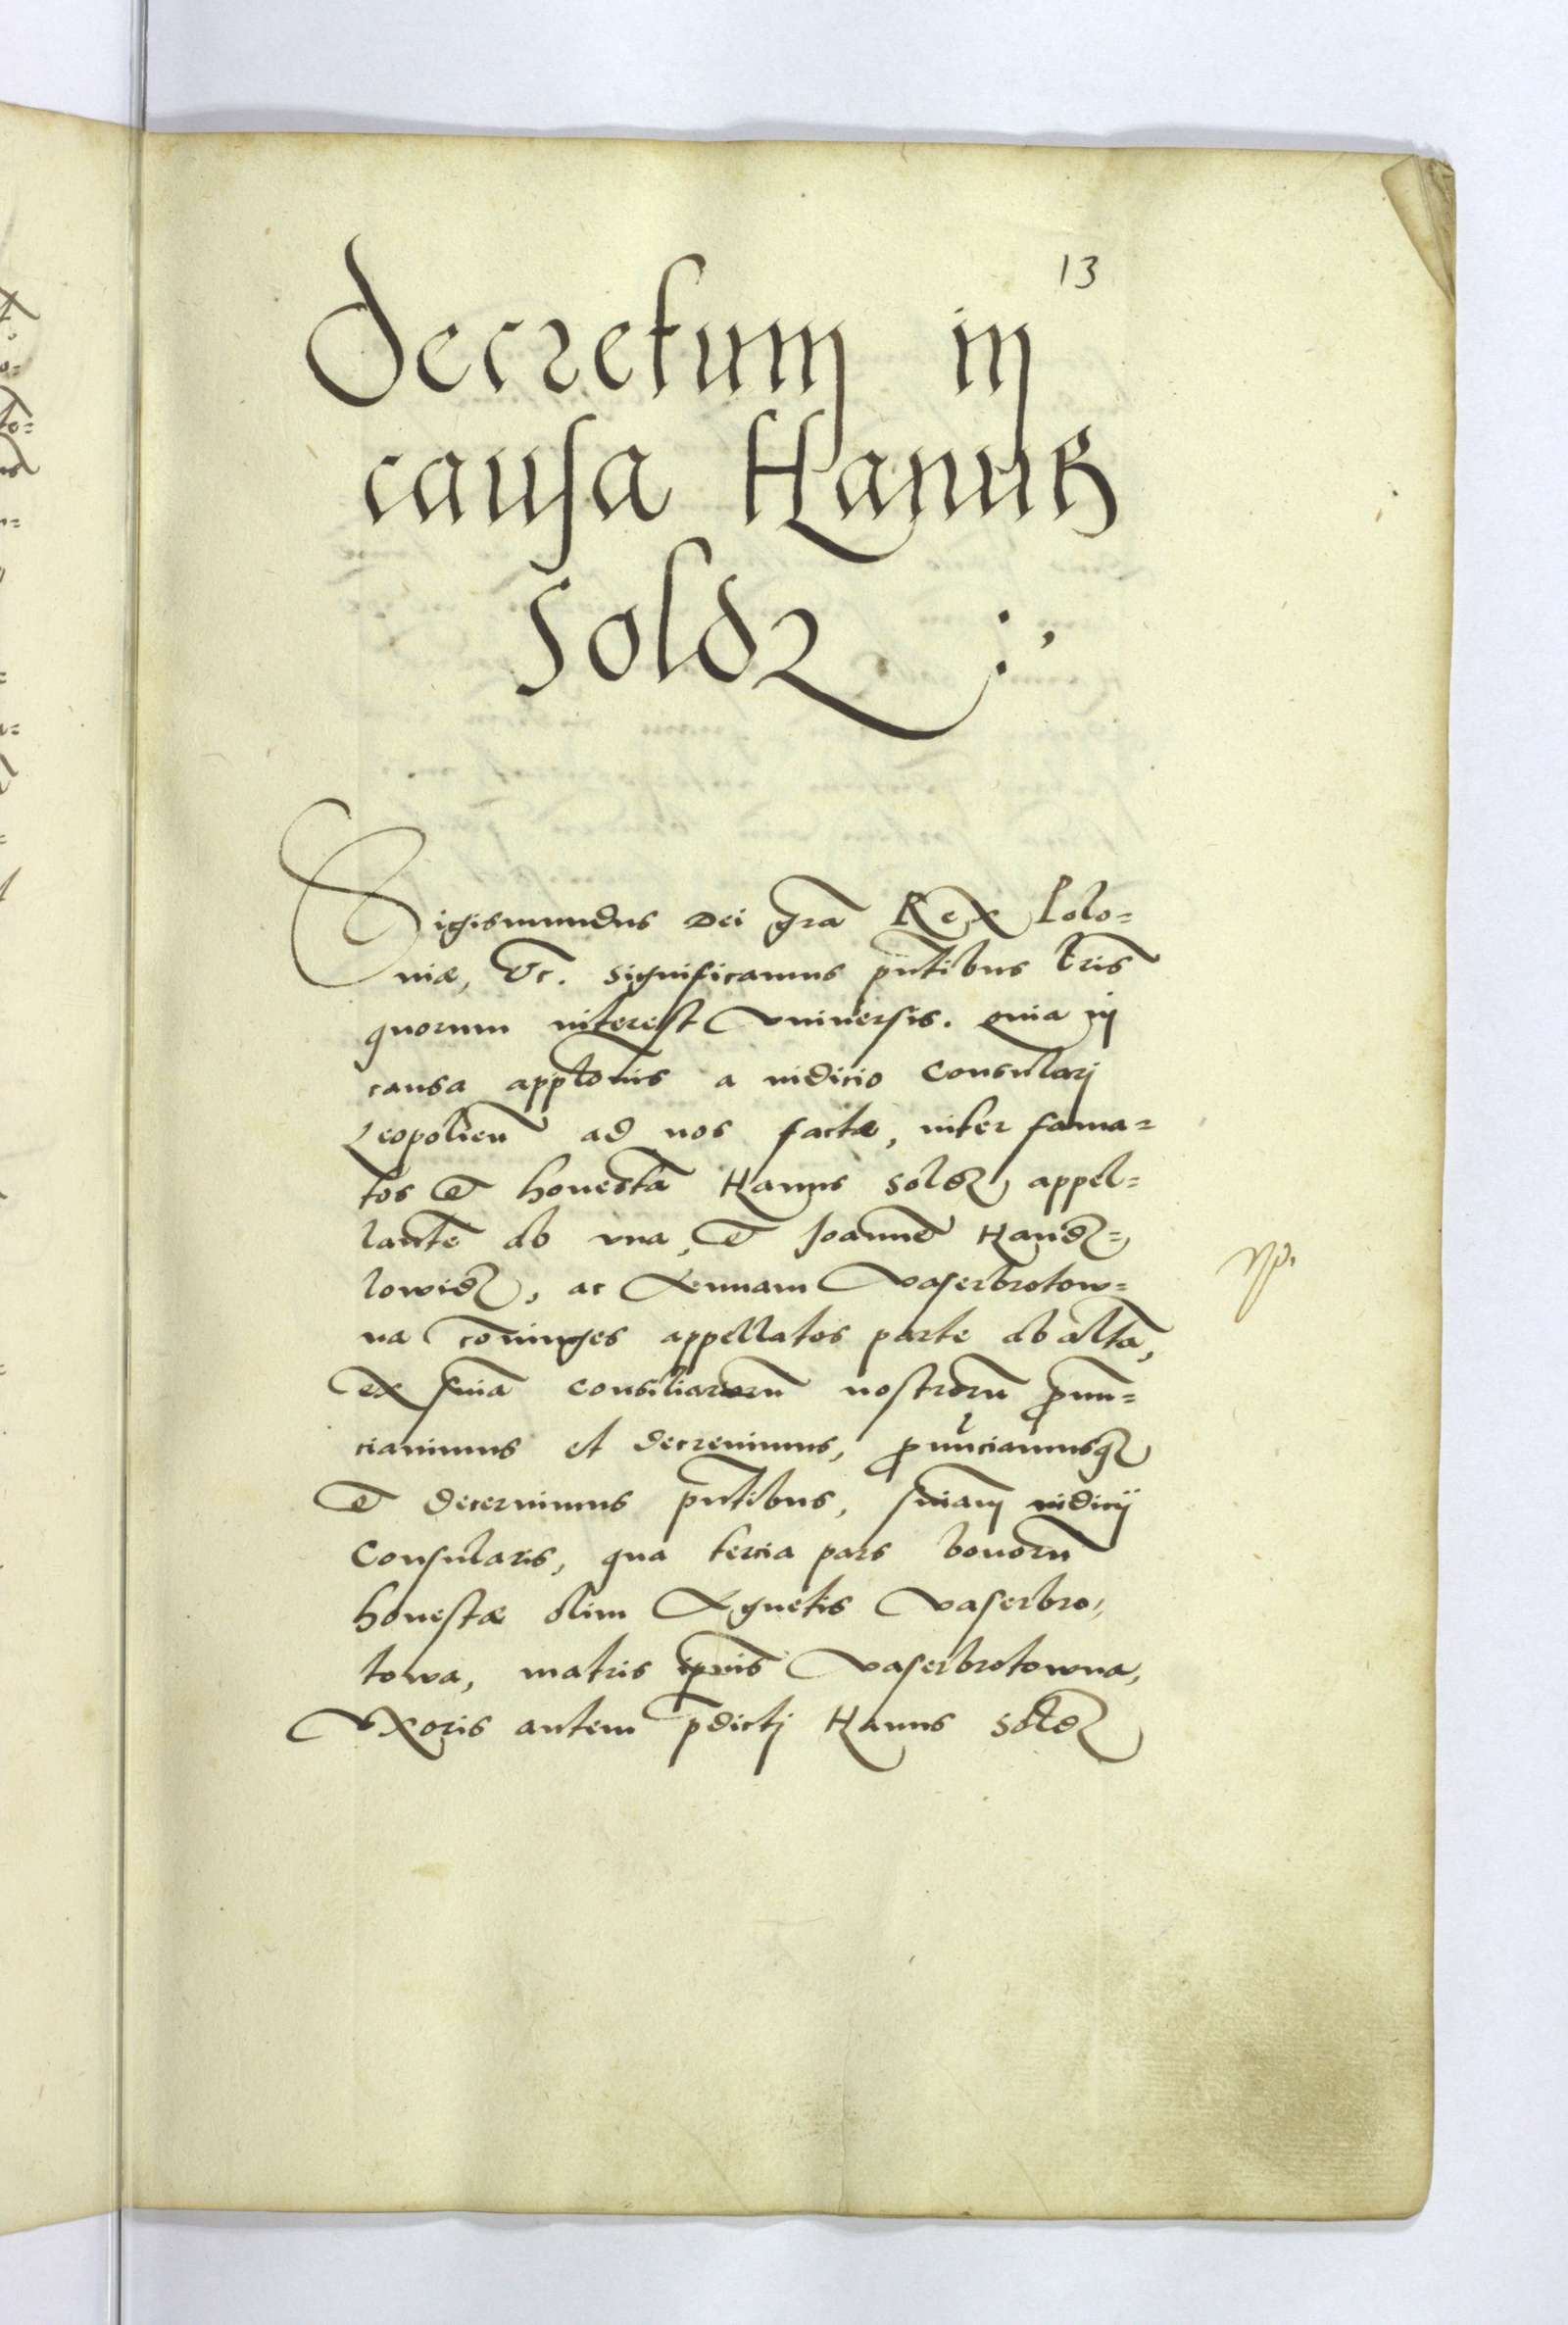 13
Decretum in
causa Hanus
Soldr :,
Sigismundus Dei gra Rex Polo=
niæ, &c. Significamus pntibus lris
quorum interest Vniuersis. Quia in
causa appltonis a iudicio Consularj
Leopolien ad nos facta, inter fama=
tos et honesta Hanus Soldr, appel=
lante ab vna, et Joanne
ac Annam Vaserbrotow=
na coniuges appellatos parte ab alta,
ex snia consiliariorū nostrorū pronun=
ciauimus et decreuimus, pronūciamusq
et decernimus pntibus, sniam iudicij
Consularis, qua tercia pars bonorū
honestæ olim Agnetis Vaserbro,
towa, matris ipsius Vaserbrotowna,
Vxoris autem pdictj Hanus Soldr